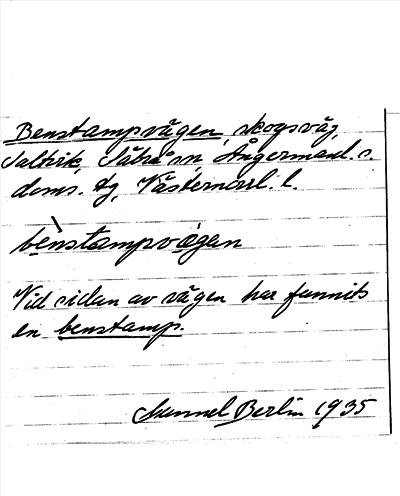 Benstampvägen, skogsväg,
Saltvik, Säbrå sn Ångermanl. s.
doms. tg, Västernorrl. l.
bènstampvägan
Vid sidan av vägen har funnits
en benstamp.
Gunnel Berlin 1935